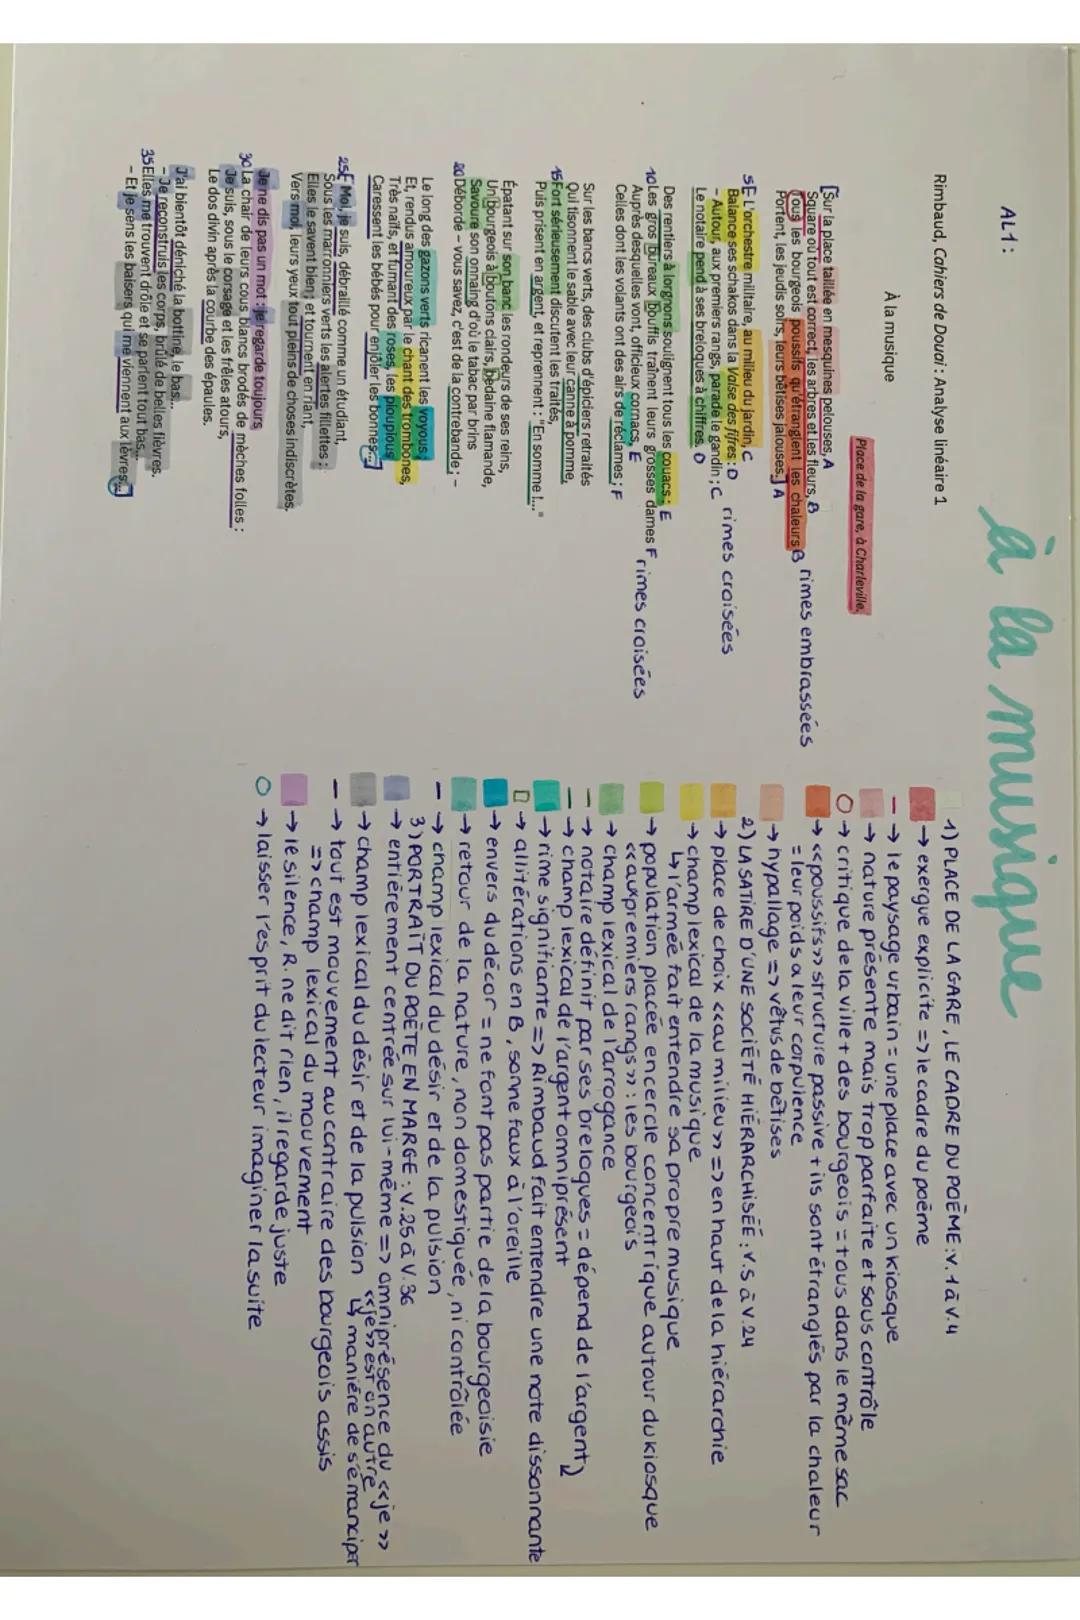 à la musique
AL1:
Rimbaud, Cahiers de Douai : Analyse linéaire 1
À la musique
Place de la gare, à Charleville.
[Sur la place taillée en mesquines pelouses, A
Square où tout est correct, les arbres et les fleurs, B
Tous les bourgeois poussifs qu'étranglent les chaleurs B rimes embrassées
Portent, les jeudis soirs, leurs bêtises jalouses.] A
5[- L'orchestre militaire, au milieu du jardin, C
Balance ses schakos dans la Valse des fifres : D
- Autour, aux premiers rangs, parade le gandin ; C rimes croisées
Le notaire pend à ses breloques à chiffres. D
Des rentiers à lorgnons soulignent tous les couacs : E
10Les gros bureaux bouffis traînent leurs grosses dames F rimes croisées
Auprès desquelles vont, officieux cornacs, E
Celles dont les volants ont des airs de réclames ; F
Sur les bancs verts, des clubs d'épiciers retraités
Qui tisonnent le sable avec leur canne à pomme,
15Fort sérieusement discutent les traités,
Puis prisent en argent, et reprennent : "En somme !..."
Épatant sur son banc les rondeurs de ses reins,
Un bourgeois à boutons clairs, bedaine flamande,
Savoure son onnaing d'où le tabac par brins
20Déborde – vous savez, c'est de la contrebande ; –
Le long des gazons verts ricanent les voyous ;
Et, rendus amoureux par le chant des trombones,
Très naïfs, et fumant des roses, les pioupious
Caressent les bébés pour enjôler les bonnes...
25[- Moi, je suis, débraillé comme un étudiant,
Sous les marronniers verts les alertes fillettes :
Elles le savent bien ; et tournent en riant,
Vers moi, leurs yeux tout pleins de choses indiscrètes.
Je ne dis pas un mot : je regarde toujours
30La chair de leurs cous blancs brodés de mèches folles :
Je suis, sous le corsage et les frêles atours,
Le dos divin après la courbe des épaules.
J'ai bientôt déniché la bottine, le bas...
- Je reconstruis les corps, brûlé de belles fièvres.
35Elles me trouvent drôle et se parlent tout bas...
- Et je sens les baisers qui me viennent aux lèvres...
1) PLACE DE LA GARE, LE CADRE DU POÈME : V.1 à V.4
→ exergue explicite => le cadre du poème
→ le paysage urbain = une place avec un kiosque
→ nature présente mais trop parfaite et sous contrôle
→ critique de la ville + des bourgeois = tous dans le même sac
→ «poussifs» structure passive + ils sont étranglés par la chaleur
= leur poids a leur corpulence
→ hypallage => vêtus de bêtises
2) LA SATIRE D'UNE SOCIÉTÉ HIÉRARCHISÉE : V.5 à V.24
→ place de choix «au milieu» => en haut de la hiérarchie
→ champ lexical de la musique
↳ l'armée fait entendre sa propre musique
→ population placée encercle concentrique autour du kiosque
«aux premiers rangs» : les bourgeois
→ champ lexical de l'arrogance
→ notaire définit par ses breloques = dépend de l'argent
→ champ lexical de l'argent omniprésent
→ rime signifiante => Rimbaud fait entendre une note dissonnante
→ allitérations en B, sonne faux à l'oreille
→ envers du décor = ne font pas partie de la bourgeoisie
→ retour de la nature, non domestiquée, ni contrôlée
→ champ lexical du désir et de la pulsion
3) PORTRAIT DU POÈTE EN MARGE : V.25 à V.36
→ entièrement centrée sur lui-même => omniprésence du «je»
«je» est un autre
→ champ lexical du désir et de la pulsion ↳ manière de s'émanciper
→ tout est mouvement au contraire des bourgeois assis
=> champ lexical du mouvement
→ le silence, R. ne dit rien, il regarde juste
→ laisser l'esprit du lecteur imaginer la suite